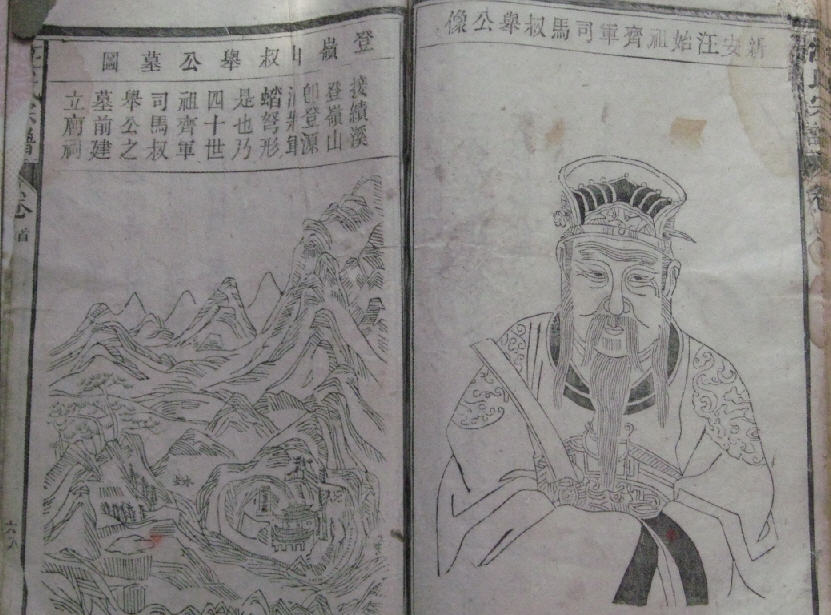 汪氏宗譜
卷
新安汪始祖齊軍司馬叔舉公像
登嶺山叔舉公墓圖
按績溪
登嶺山
即登源
弩形
是也乃
四十世
祖齊軍
司馬叔
舉公之
墓前建
立廟祠
氏宗譜
卷首